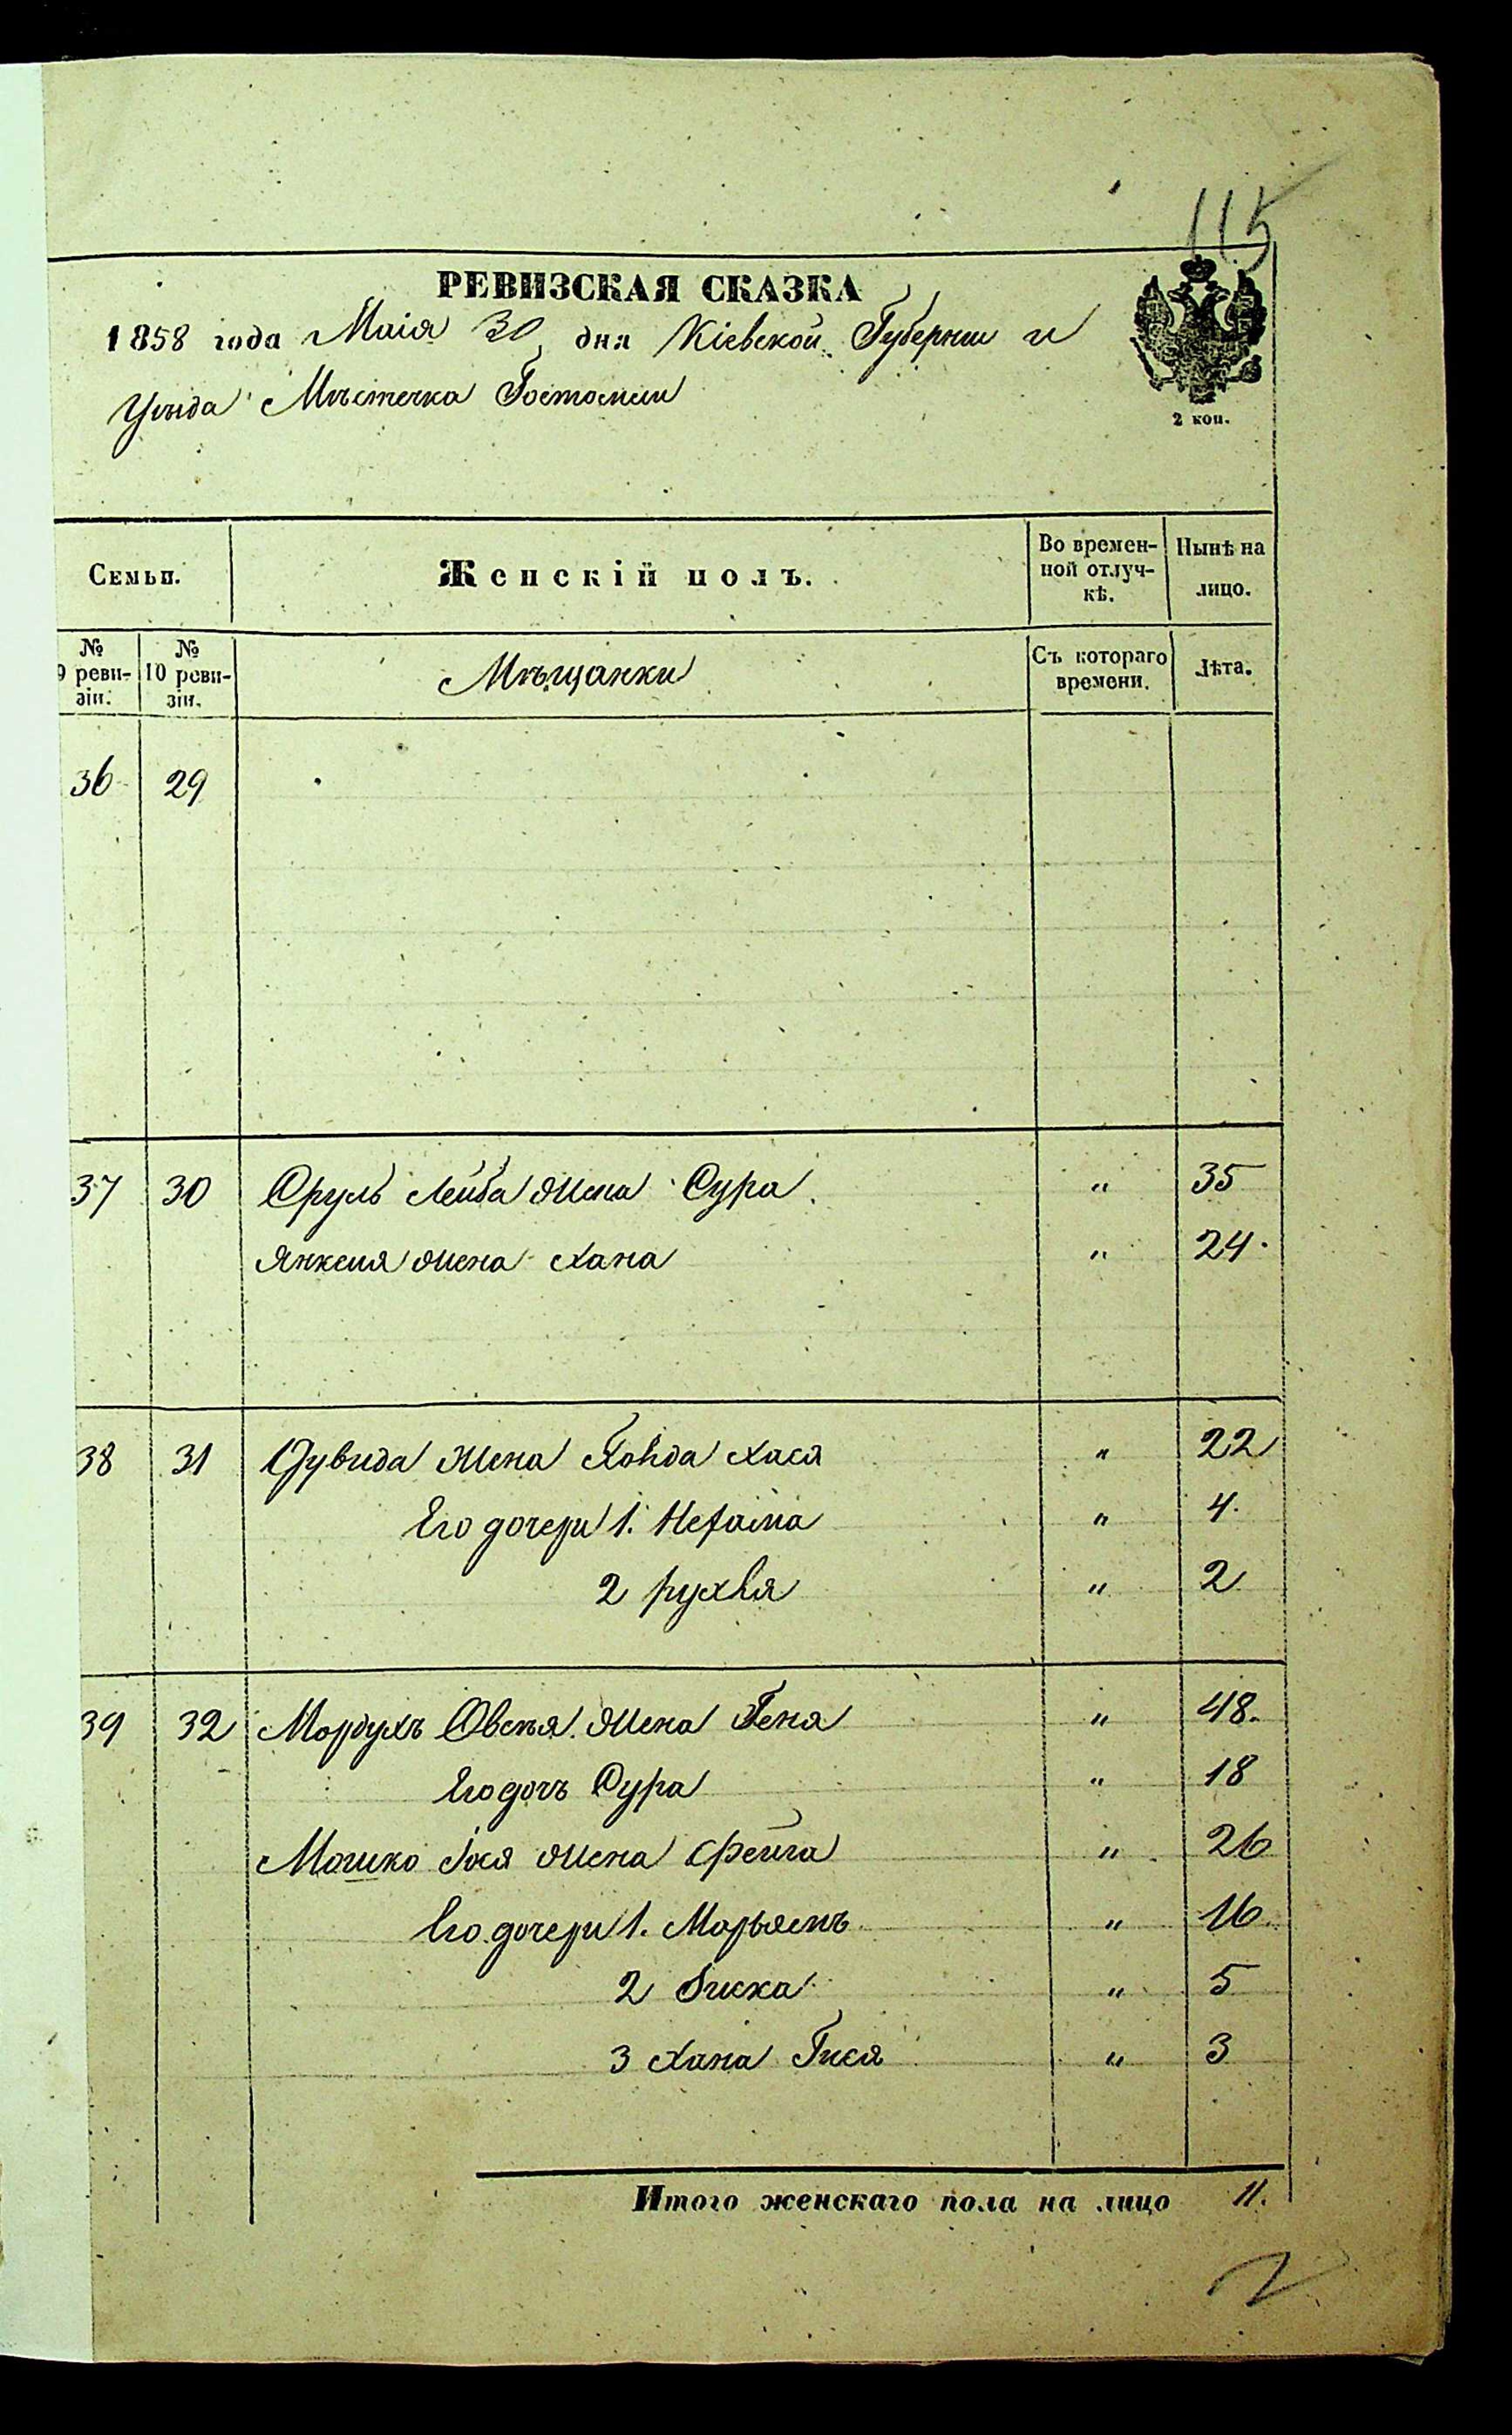 115
РЕВИЗСКАЯ СКАЗКА
1858 года Маія 30 дня Кіевской Губерніи и
Уѣзда Мѣстечка Гостомля
2 коп.
Семьи.
Женскій полъ.
Во времен-
ной отлуч-
кѣ.
Нынѣ на
лицо.
№
9 реви-
зіи.
№
10 реви-
зіи.
Мѣщанки
Съ котораго
времени.
Лѣта.
36 29
37 30 Сруль Лейба жена Сура " 35
Янкеля жена Хана " 24
38 31 Дувида жена Хася " 22
Его дочери 1. " 4
2 рухля " 2
39 32 Мордухъ Овсѣя жена Геня " 48
Его дочь Сура " 18
Мошко жена Фейга " 26
Его дочери 1. Марьямъ " 16
2 " 5
3 Хана Гися " 3
Итого женскаго пола на лицо 11.